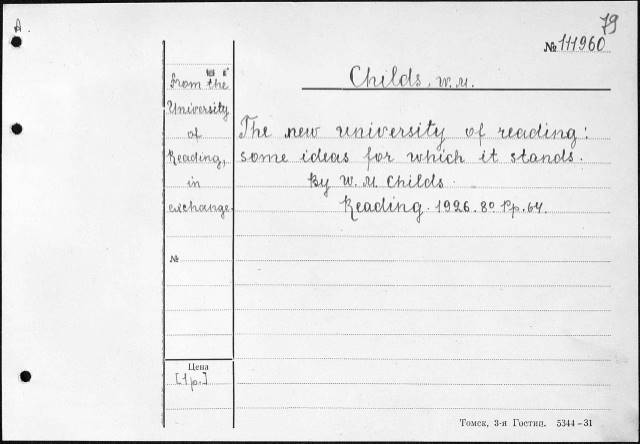 A.
79
№ 111960
Childs, W.M.
From the
University
of
Reading,
in
exchange.
The new university of reading:
some ideas for which it stands.
By W.M. Childs.
Reading. 1926. 8º Pp. 64.
№
Цена
[1 р.]
Томск, 3-я Гостип. 5344–31